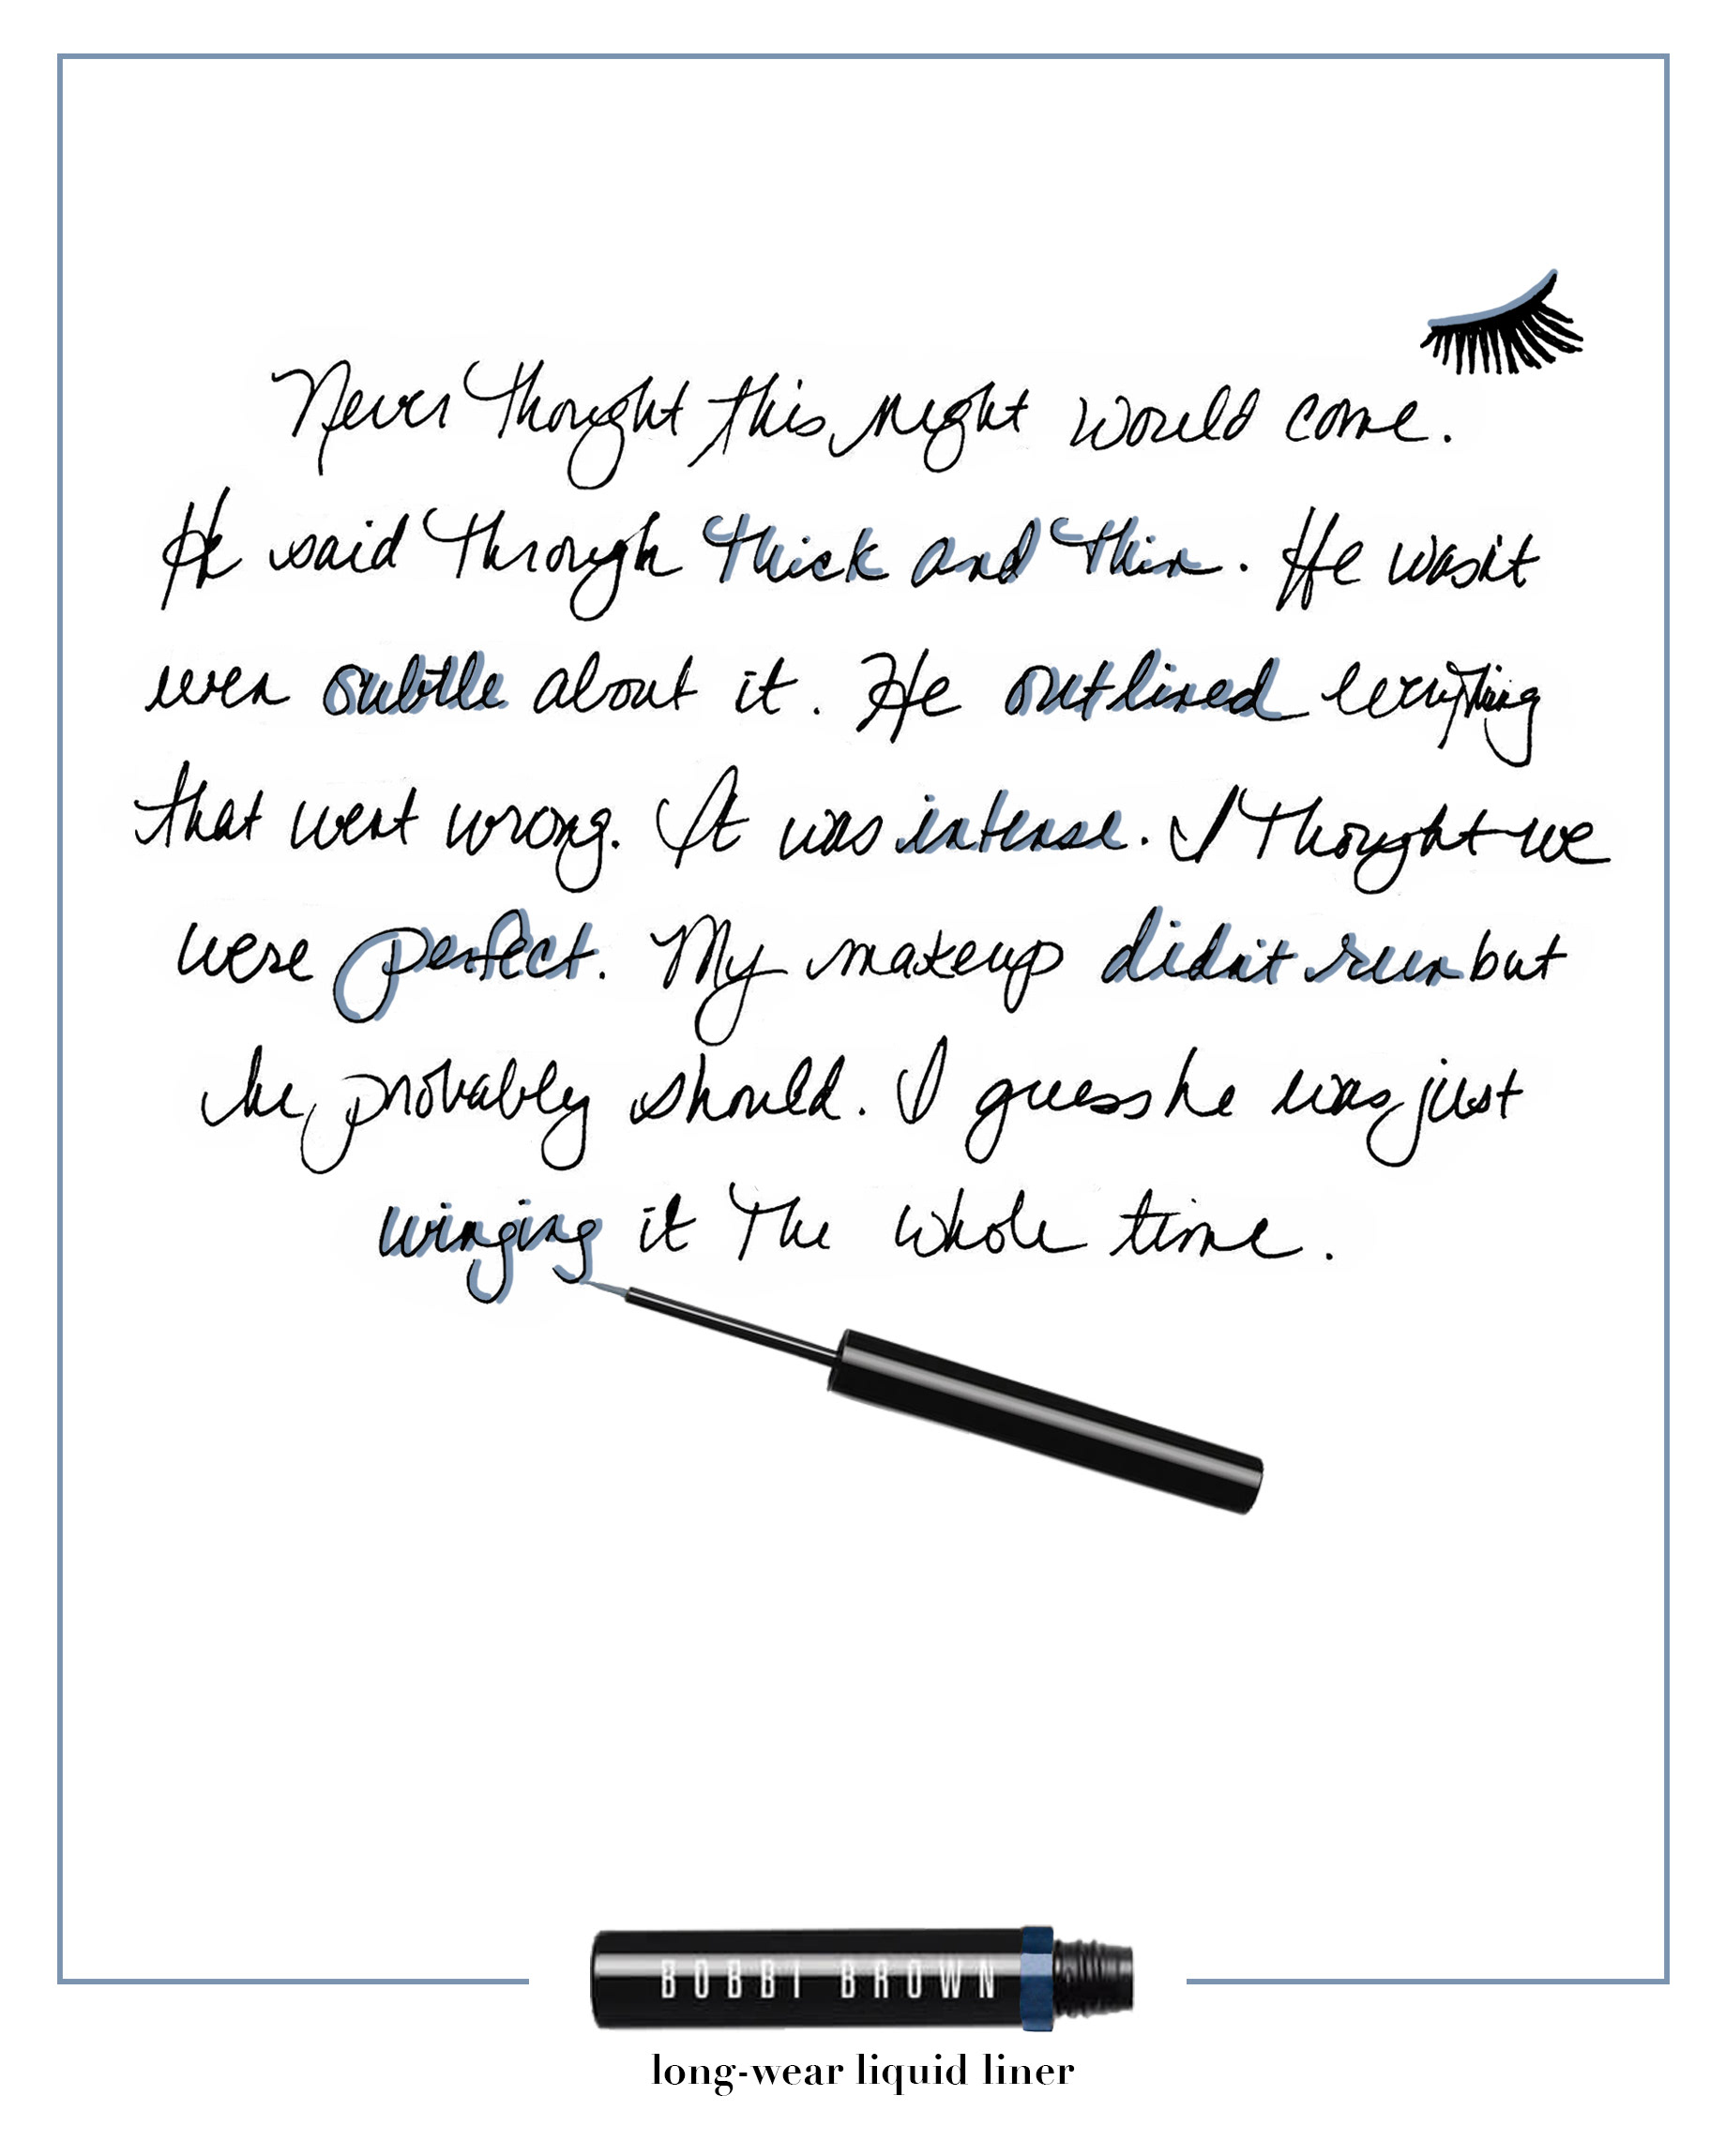 Never thought this night would come.
He said through thick and thin. He wasn't
even subtle about it. He outlined everything
that went wrong. It was intense. I thought we
were perfect. My makeup didn't run but
he probably should. I guess he was just
winging it the whole time.
BOBBI BROWN
long-wear liquid liner